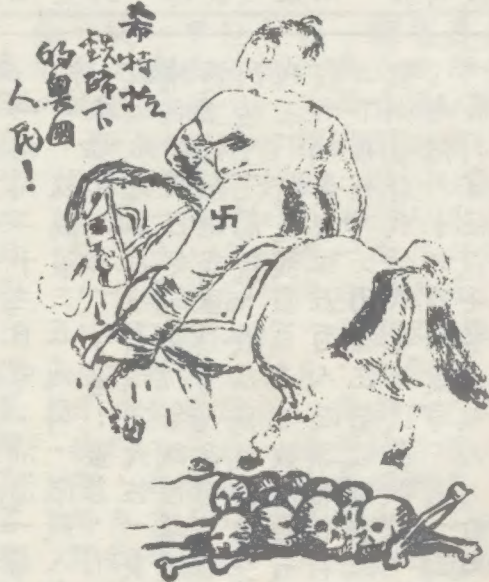 希特拉
鐵蹄下
的奧國
人民！